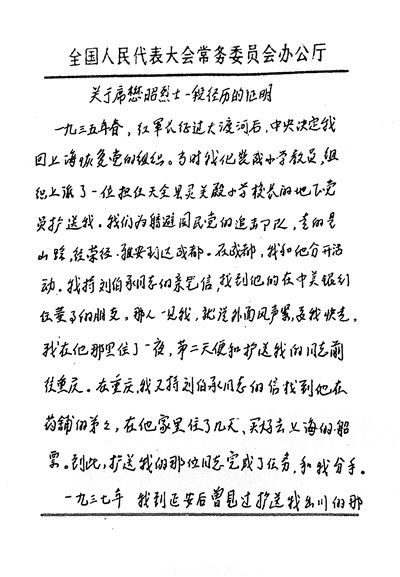 全国人民代表大会常务委员会办公厅
关于席懋昭烈士一段经历的证明
一九三五年春，红军长征过大渡河后，中央决定我
回上海恢复党的组织。当时我化装成小学教员，组
织上派了一位担任天全县灵关殿小学校长的地下党
员护送我。我们为躲避国民党的追击部队，走的是
山路，经荣经、雅安到达成都。在成都，我和他分开活
动。我持刘伯承同志的亲笔信，找到他的在中美银行
任董事的朋友。那人一见我，就说外面风声紧，要我快走。
我在他那里住了一夜，第二天便和护送我的同志前
往重庆。在重庆，我又持刘伯承同志的信找到他在
药铺的弟弟，在他家里住了几天，买好去上海的船
票。到此，护送我的那位同志完成了任务，和我分手。
一九三七年 我到延安后曾见过护送我出川的那